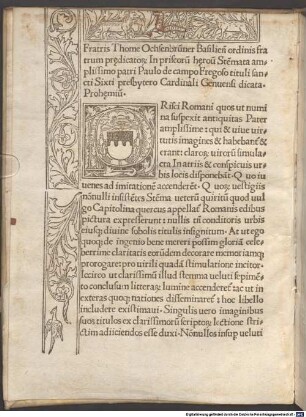 Fratris Thome Ochsenbrũner Basiliẽ ordinis fra
trum prædicatoȝ In priscorũ heroũ Stẽmata am
plissimo patri Paulo de campo Fregoso tituli san
cti Sixti presbytero Cardinali Genuensi dicata.
Prohœmiũ.
RIsci Romani quos ut numi
na suspexit antiquitas Pater
amplissime: qui & uiue uir
tutis imagines & habebant̃ &
erant: claroȝ uiroȝ simula
cra In atriis & conspicuis ur
bis locis disponebãt. Quo iu
uenes ad imitationẽ accenderẽt. Quoȝ uestigiis
nõnulli insistẽtes Stẽma ueterũ quiritũ quod uul
go Capitolina quercus appellat̃ Romanis edibus
pictura expresserunt: nullis tñ conditoris urbis
eiusq; diuine sobolis titulis insignitum. At ut ego
quoq; de ingenio bene mereri possim gloriã cele
berrime claritatis eorũdem decorare memoriamq;
prorogare: pro uirili quadã stimulatione incitor.
Iccirco ut clarissimũ illud stemma ueluti sepimẽ
to conclusum litteraȝ lumine accenderẽ: ac ut in
exteras quoq; nationes disseminaret̃: hoc libello
includere existimaui. Singulis uero imaginibus
suos titulos ex clarissimorũ scriptoȝ lectione stri
ctim adiiciendos esse duxi. Nõnullos insup ueluti